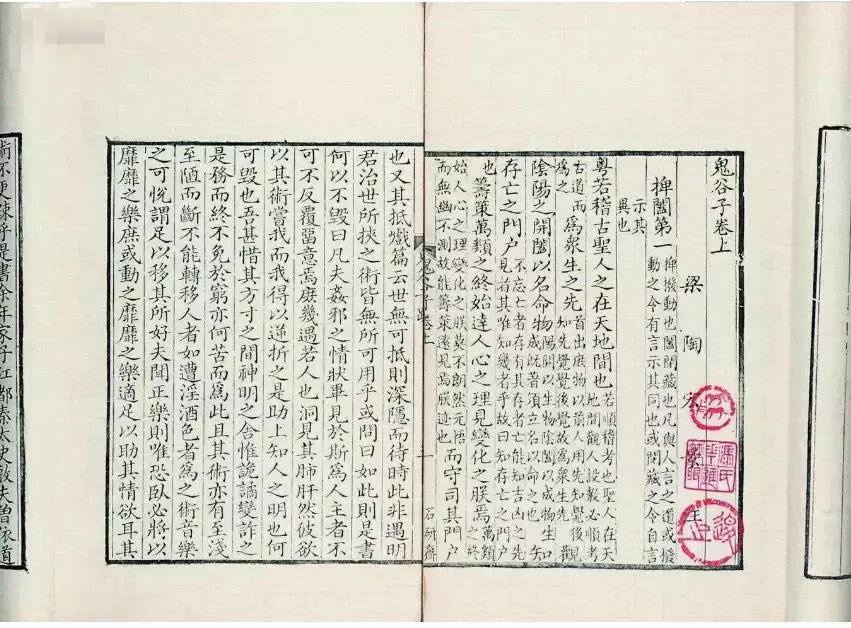 鬼谷子卷上
梁 陶 宏 景
捭闔第一 捭撥動也闔閉藏也凡與人言之道或撥
動之令有言示其同也或閉藏之令自言
示其
異也
粤若稽古聖人之在天地間也 若順稽考也聖人在天
地間觀人設教必順考
古道而
為之 為衆生之先 首出庶物以前人用先知覺後見
先知先覺覺後覺故為衆生先 觀
陰陽之開闔以名命物 陽開以生物陰闔以成物生
成既著須立名以命之也 知
存亡之門户 不忘亡者存有其存者亡能知吉凶之先
見者其唯知幾者乎故曰知存亡之門户
也 籌策萬類之終始達人心之理見變化之朕焉 萬類
之終
始人心之理變化之朕莫不朗然元悟
而無幽不測故能籌策遠見焉朕迹也 而守司其門户
鬼谷子卷上 一 石研齋
也又其抵巇篇云世無可抵則深隱而待時此非遇明
君治世所挾之術皆無所可用乎或問曰如此則是書
何以不毁曰凡夫姦邪之情狀畢見於斯為人主者不
可不反覆留意焉庶幾遇若人也洞見其肺肝然彼欲
以其術嘗我而我得以逆折之是助上知人之明也何
可毁也吾甚惜其方寸之間神明之舍惟詭譎變詐之
是務而終不免於窮亦何苦而為此且其術亦有至淺
至陋而斷不能轉移人者如遭淫酒色者為之術音樂
之可悅謂足以移其所好夫聞正樂則唯恐卧必將以
靡靡之樂庶或動之靡靡之樂適足以助其情欲耳其
術不更疎乎是書余年家子江都秦太史敦夫曾依道